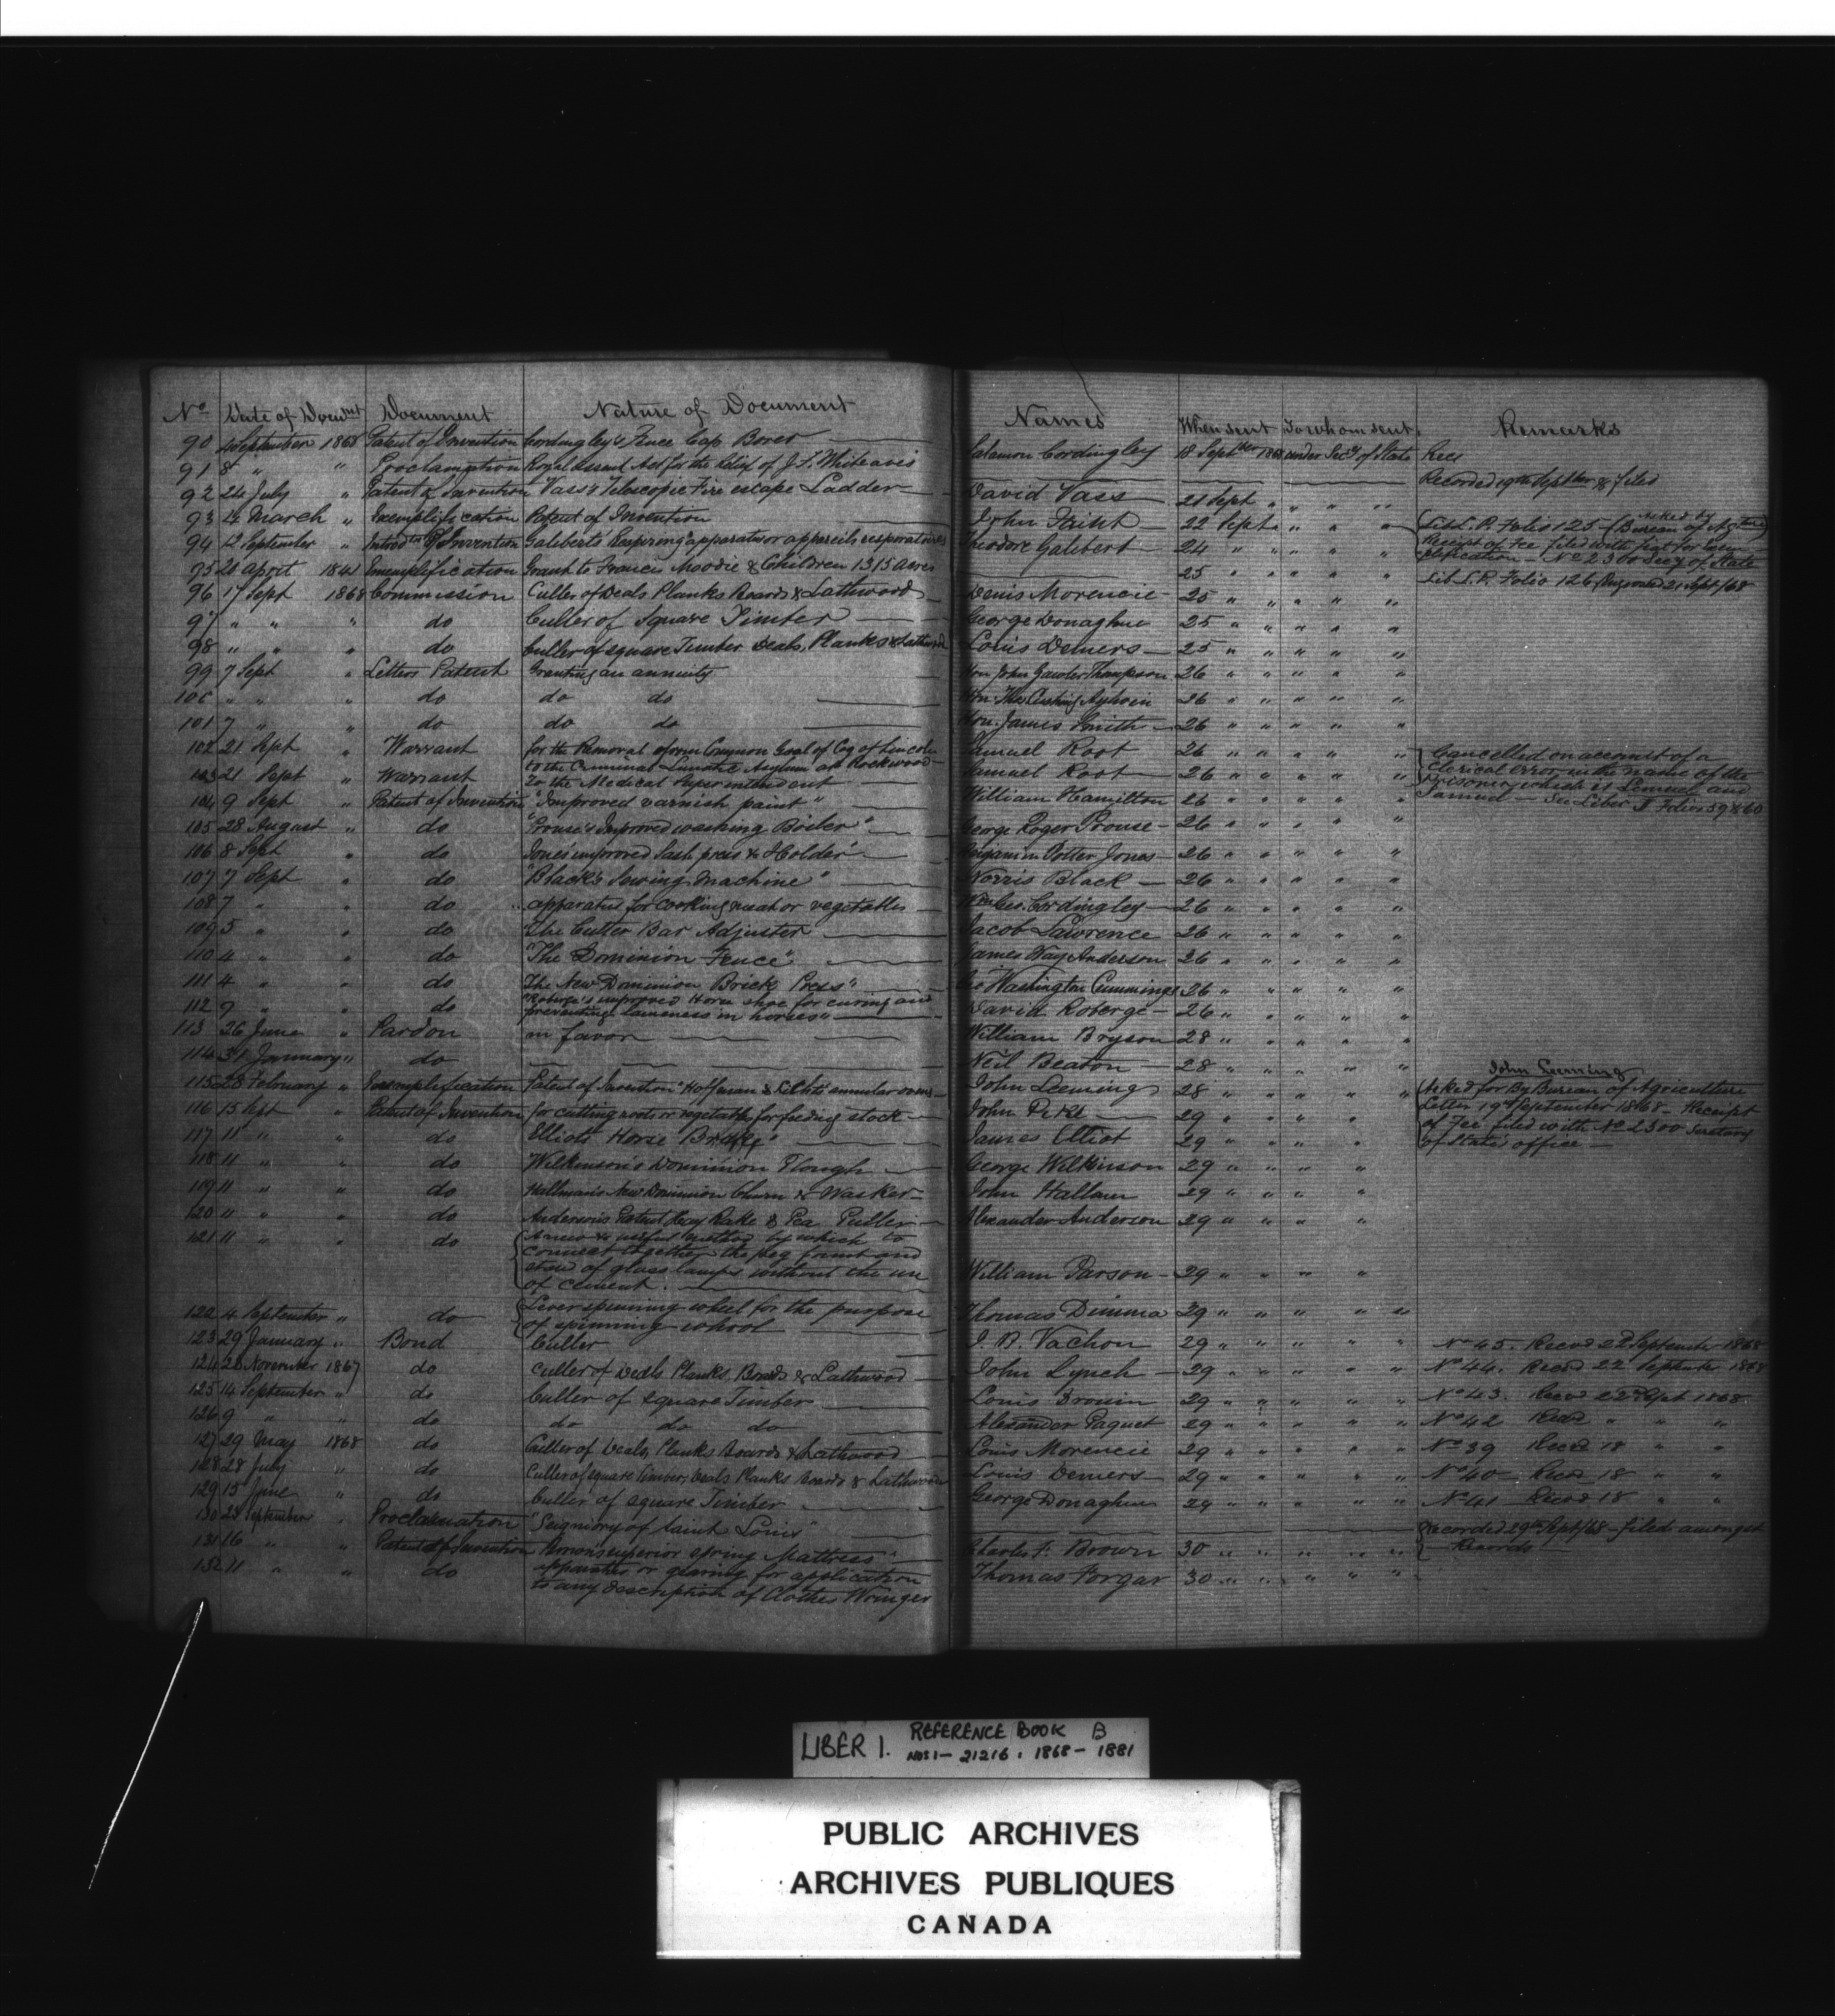 No Date of Docum't Document Nature of Document Names When sent To whom sent Remarks
90 4 September 1868 Patent of Invention Cordingley's Fence Cap Borer Salamon Cordingley 18 Septber 1868 under Secy of State Recs
91 8 " " Proclamation Royal Assent Act for the Relief of J. F. Whiteavis Recorded 19th Septber 68 filed
92 24 July " Patent of Invention Vass's Telescopic Fire escape Ladder David Vass 21 Sept " " " "
93 14 March " Exemplification Patent of Invention John Saint 22 Sept " " " " Lib L. P. Folio 125 - (Asked by Bureau of Agture)
94 12 September " Introdtn of Invention Galibert's Respiring apparatus or appareils respiratoires Theodore Galibert 24 " " " " " Receipt of Fee filed with fiat for Exemplification - No 2300 Secy of State
95 20 April 1841 Exemplification Grant to Francis Moodie & Children 1315 acres 25 " " " " Lib L. P. Folio 126 21 Sept/68
96 17 Sept 1868 Commission Culler of Deals Planks Boards & Lathwood Denis Morencie 25 " " " " "
97 " " " do Culler of Square Timber George Donaghue 25 " " " " "
98 " " " do Culler of square Timber Deals, Planks & Lathwood Louis Demers 25 " " " " "
99 7 Sept " Letters Patent Granting an annuity Hon John Gawler Thompson 26 " " " " "
100 " " " do do do Hon. Thos Cushing Aylwin 26 " " " " "
101 7 " " do do do Hon. James Smith 26 " " " " "
102 21 Sept " Warrant for the Removal from Common Goal of Coy of Lincoln Samuel Root 26 " " " " " Cancelled on account of a
to the Criminal Lunatic Asylum at Rockwood clerical error in the name of the
103 21 Sept " Warrant To the Medical Superintendent Samuel Root 26 " " " " " Prisoner which is Lemuel and
104 9 Sept " Patent of Invention "Improved varnish paint" William Hamilton 26 " " " " " Samuel - See Liber Folios 59 & 60
105 28 August " do "Prouse's Improved washing Boiler" George Roger Prouse 26 " " " " "
106 8 Sept " do Jones' improved Sash press & Holder" Benjamin Potter Jones 26 " " " " "
107 7 Sept " do "Black's Sewing Machine" Norris Black 26 " " " " "
108 7 " " do apparatus for cooking meat or vegetables Wm Geo. Cordingley 26 " " " " "
109 5 " " do The Cutter Bar Adjuster Jacob Lawrence 26 " " " " "
110 4 " " do "The Dominion Fence" James Way Anderson 26 " " " " "
111 4 " " do The New Dominion Brick Press" Geo Washington Cummings 26 " " " " "
112 9 " " do "Roberge's improved Horse shoe for curing and David Roberge 26 " " " " "
preventing lameness in horses"
113 26 June " Pardon in favor William Bryson 28 " " " " "
114 31 January " do Neil Beaton 28 " " " " " John Leeming
115 28 February " Exemplification Patent of Invention "Hoffman & Licht's annular ovens John Leeming 28 " " " " " Asked for By Bureau of Agriculture
116 15 Sept " Patent of Invention for cutting roots or vegetables for feeding stock John Pike 29 " " " " Letter 19th September 1868 - Receipt
117 11 " " do Elliot's Horse Brake" James Elliot 29 " " " " of Fee filed with No 2300 Secretary
of State's office
118 11 " " do Wilkinson's Dominion Plough George Wilkinson 29 " " " "
119 11 " " do Hallman's New Dominion Churn & Wasker John Hallman 29 " " " "
120 11 " " do Anderson's Patent Hay Rake & Pea Puller Alexander Anderson 29 " " " "
121 11 " " do A new & useful method by which to
connect together the peg fount and
of glass lamps without the use William Parson 29 " " " "
of cement.
122 4 September " do Lever spinning wheel for the purpose Thomas Dimma 29 " " " " "
of spinning whool
123 29 January " Bond Culler J. B. Vachon 29 " " " " " No 45. Recvd 22d September 1868
124 28 November 1867 do Culler of Deals Planks, Boards & Lathwood John Lynch 29 " " " " " No 44. Recvd 22 September 1868
125 14 September " do Culler of square Timber Louis Drouin 29 " " " " " No 43. Recvd 22d Sept 1868
126 9 " " do do do do Alexander Paquet 29 " " " " " No 42 Recvd " " "
127 29 May 1868 do Culler of Deals, Planks Boards & Lathwood Louis Morencie 29 " " " " " No 39 Recvd 18 " "
128 28 July " do Culler of square Timber, Deals Planks Boards & Lathwood Louis Demers 29 " " " " " No 40 Recvd 18 " "
129 15 June " do Culler of square Timber George Donaghue 29 " " " " " No 41 Recvd 18 " "
130 23 September " Proclamation "Seigniory of Saint Louis" Recorded 29th Sept/68 - filed amongst
131 16 " " Patent of Invention Brown's superior spring Mattress" Charles F. Brown 30 " " " " " Records
132 11 " " do apparatus or gearing for application Thomas Forgar 30 " " " " "
to any description of Clothes Wringer
LIBER 1. REFERENCE BOOK B
NOS 1 - 21216 : 1868 - 1881
PUBLIC ARCHIVES
ARCHIVES PUBLIQUES
CANADA